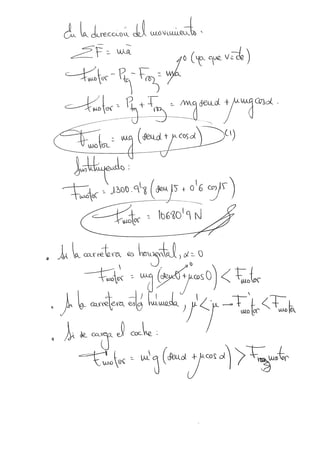 En la dirección del movimiento.
ΣF = ma
0 (ya que v = cte)
Fmotor - Ptg - Froz = ma
Fmotor = Ptg + Froz = mg senα + μmg cosα.
Fmotor = mg (senα + μcosα) (1)
Sustituyendo:
Fmotor = 1300·9'8 (sen15 + 0'6 cos15)
Fmotor = 10680'9 N
• Si la carretera es horizontal, α = 0
F'motor = mg (sen0 + μcos0) < Fmotor
0
• Si la carretera está húmeda, μ' < μ → F'motor < Fmotor
• Si se carga el coche:
F'motor = m'g (senα + μcosα) > Fmotor